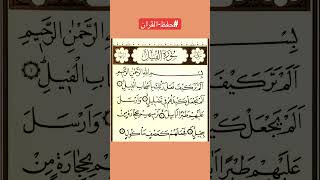 #حفظة-القرآن
سُورَةُ الفِيلِ
بِسْمِ اللَّهِ الرَّحْمَٰنِ الرَّحِيمِ
أَلَمْ تَرَ كَيْفَ فَعَلَ رَبُّكَ بِأَصْحَابِ الْفِيلِ
أَلَمْ يَجْعَلْ كَيْدَهُمْ فِي تَضْلِيلٍ وَأَرْسَلَ
عَلَيْهِمْ طَيْرًا أَبَابِيلَ تَرْمِيهِمْ بِحِجَارَةٍ مِنْ
سِجِّيلٍ فَجَعَلَهُمْ كَعَصْفٍ مَأْكُولٍ